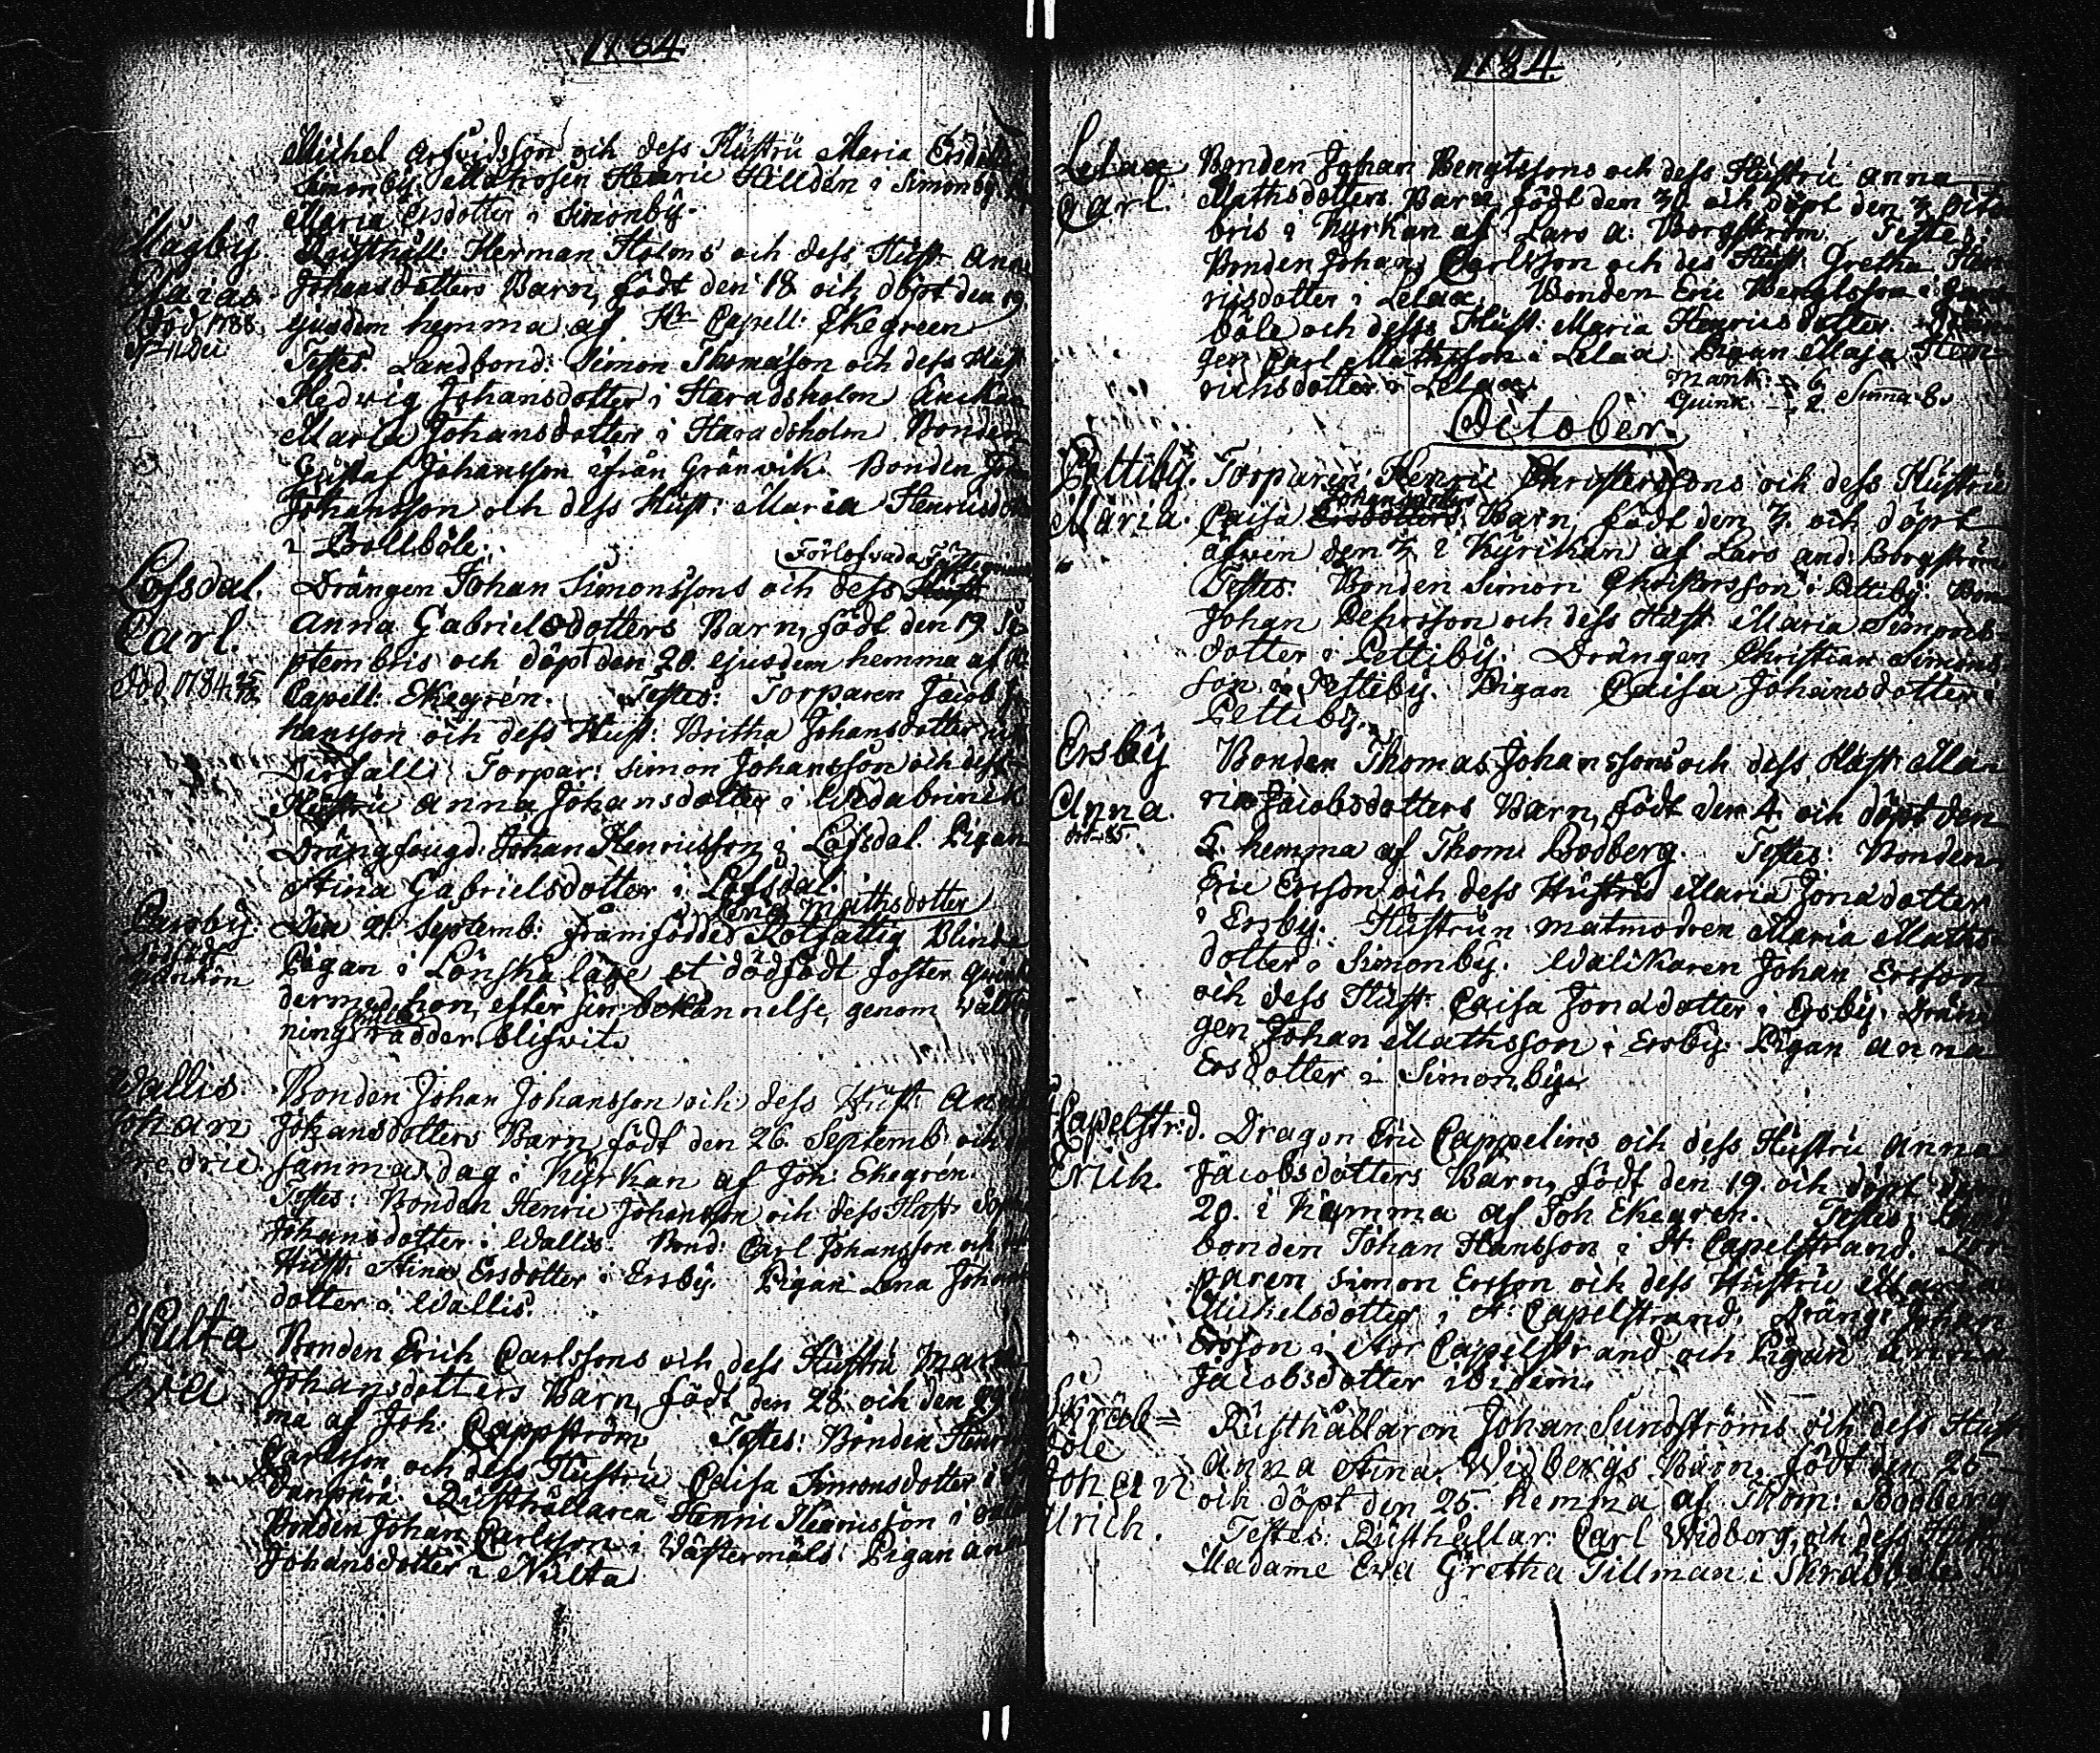 1784
Michel Arfvidsson och dess Hustru Maria Ersdotter
Simonby. Matrosen Henric Hilldén i Simonby
Maria Ersdotter i Simonby.
Mågby Rusthåll: Herman Holms och dess Hust Anna
Johansdotters Barn, födt den 18 och döpt den 19
Död 1788 ejusdem hemma af Hr Capell: Ekegreen
Testes. Landbond: Simon Thomasson och dess Hust
Hedvig Johansdotter i Haradsholm Enkan
Maria Johansdotter i Haradsholm Bonden
Gustaf Johansson ifrån Gränvik. Bonden
Johansson och dess Hust: Maria Henricsdotter
i Bollböle.
Förlofvade Fästeqvinna
Lofsdal. Drängen Johan Simonssons och dess Hust
Carl. Anna Gabrielsdotters Barn, födt den 19 Se
ptembris och döpt den 20. ejusdem hemma af
Död 1784 Capell: Ekegrén. Testes: Torparen Jacob Jo
hansson och dess Hust: Britha Johansdotter
Torpar: Simon Johansson och dess
Hustru Anna Johansdotter i Wedabrinck
Drängfougd: Johan Henricsson i Lofsdal. Pigan
Stina Gabrielsdotter i Lofsdal.
Lena Mathsdotter
Parsby. Den 21. Septemb: framfödde Rotfattig Blinda
dödfödt Pigan i Lönskaläge et dödfödt foster
mankön dermed hon, efter sin bekännelse, genom
nings rädder blifvit.
Wallis Bonden Johan Johansson och dess Hust: Anna
Johan Johansdotters Barn, födt den 26. Septemb: och
Fredric. samma dag i Kyrkan af Joh: Ekegrén.
Testes: Bonden Henric Johansson och dess Hust:
Johansdotter i Wallis. Bond: Carl Johansson och
Hust: Stina Ersdotter i Ersby. Pigan Lena Johans
dotter i Wallis.
Nulta Bonden Erich Carlssons och dess Hustru Maria
Johansdotters Barn, födt den 28. och den 29
ma af Joh: Cappström Testes: Bonden Henric
Carlsson och dess Hustru Caisa Simonsdotter i
Rusthållaren Henric Henricsson i
Bonden Johan Carlsson i Västermäls: Pigan Anna
Johansdotter i Nulta
1784.
Lelax Bonden Johan Bengtssons och dess Hustru Anna
Carl. Mathsdotters Barn, födt den 30 och döpt den 3 Octo
bris i Kyrkan af Lars A: Borgström. Testes:
Bonden Johan Carlsson och des Hust: Gretha Hen
ricsdotter i Lelax. Bonden Eric Bengtsson i
böle och dess Hust: Maria Henricsdotter. Drän
gen Carl Mathsson i Lelax Pigan Maja Hen
richsdotter i Lelax.
Mank: 6
Quink: 2. Suma 8.
October.
Pettiby. Torparen Henric Christerssons och dess Hustru
Johansdotters
Maria. Caisa Ersdotters Barn, födt den 3. och döpt
äfven den 3. i Kyrckan af Lars And: Borgström
Testes. Bonden Simon Christersson i Pettiby. Bon
Johan Pehrsson och dess Hust Maria Simons
dotter i Pettiby. Drängen Christian Simons
son i Pettiby. Pigan Caisa Johansdotter i
Pettiby.
Ersby Bonden Thomas Johanssons och dess Hust: Ma
Anna. ria Jacobsdotters Barn, födt den 4. och döpt den
5. hemma af Thom: Bodberg. Testes: Bonden
Eric Ersson och dess Hustru Maria Jonadotter
i Ersby. Hustrun Matmodren Maria Maths
dotter i Simonby. Walikaren Johan Ersson
och dess Hust: Caisa Jonadotter i Ersby. Drän
gen Johan Mathsson i Ersby. Pigan Anna
Ersdotter i Simonby.
Capelstr:d. Dragon Eric Cappelins och dess Hustru Anna
Erich. Jacobsdotters Barn, födt den 19. och döpt den
20. i hemma af Joh Ekegren. Testes: Land
bonden Johan Hansson i St: Capelstrand. Tor
paren Simon Ersson och dess Hustru Maria
Michelsdotter i St: Capelstrand. Dräng: Johan
Ersson i Stor Cappelstrand och Pigan Anna
Jacobsdotter ibidem.
Skräb= Rusthållaren Johan Sundströms och dess Hust
böle Anna Stina Widbergs Barn, födt den 25
Johan och döpt den 25. hemma af Thom: Bodberg
Ulrich. Testes: Rusthållar: Carl Widberg, och dess Hustru
Madame Eva Gretha Tillman i Skräbböle